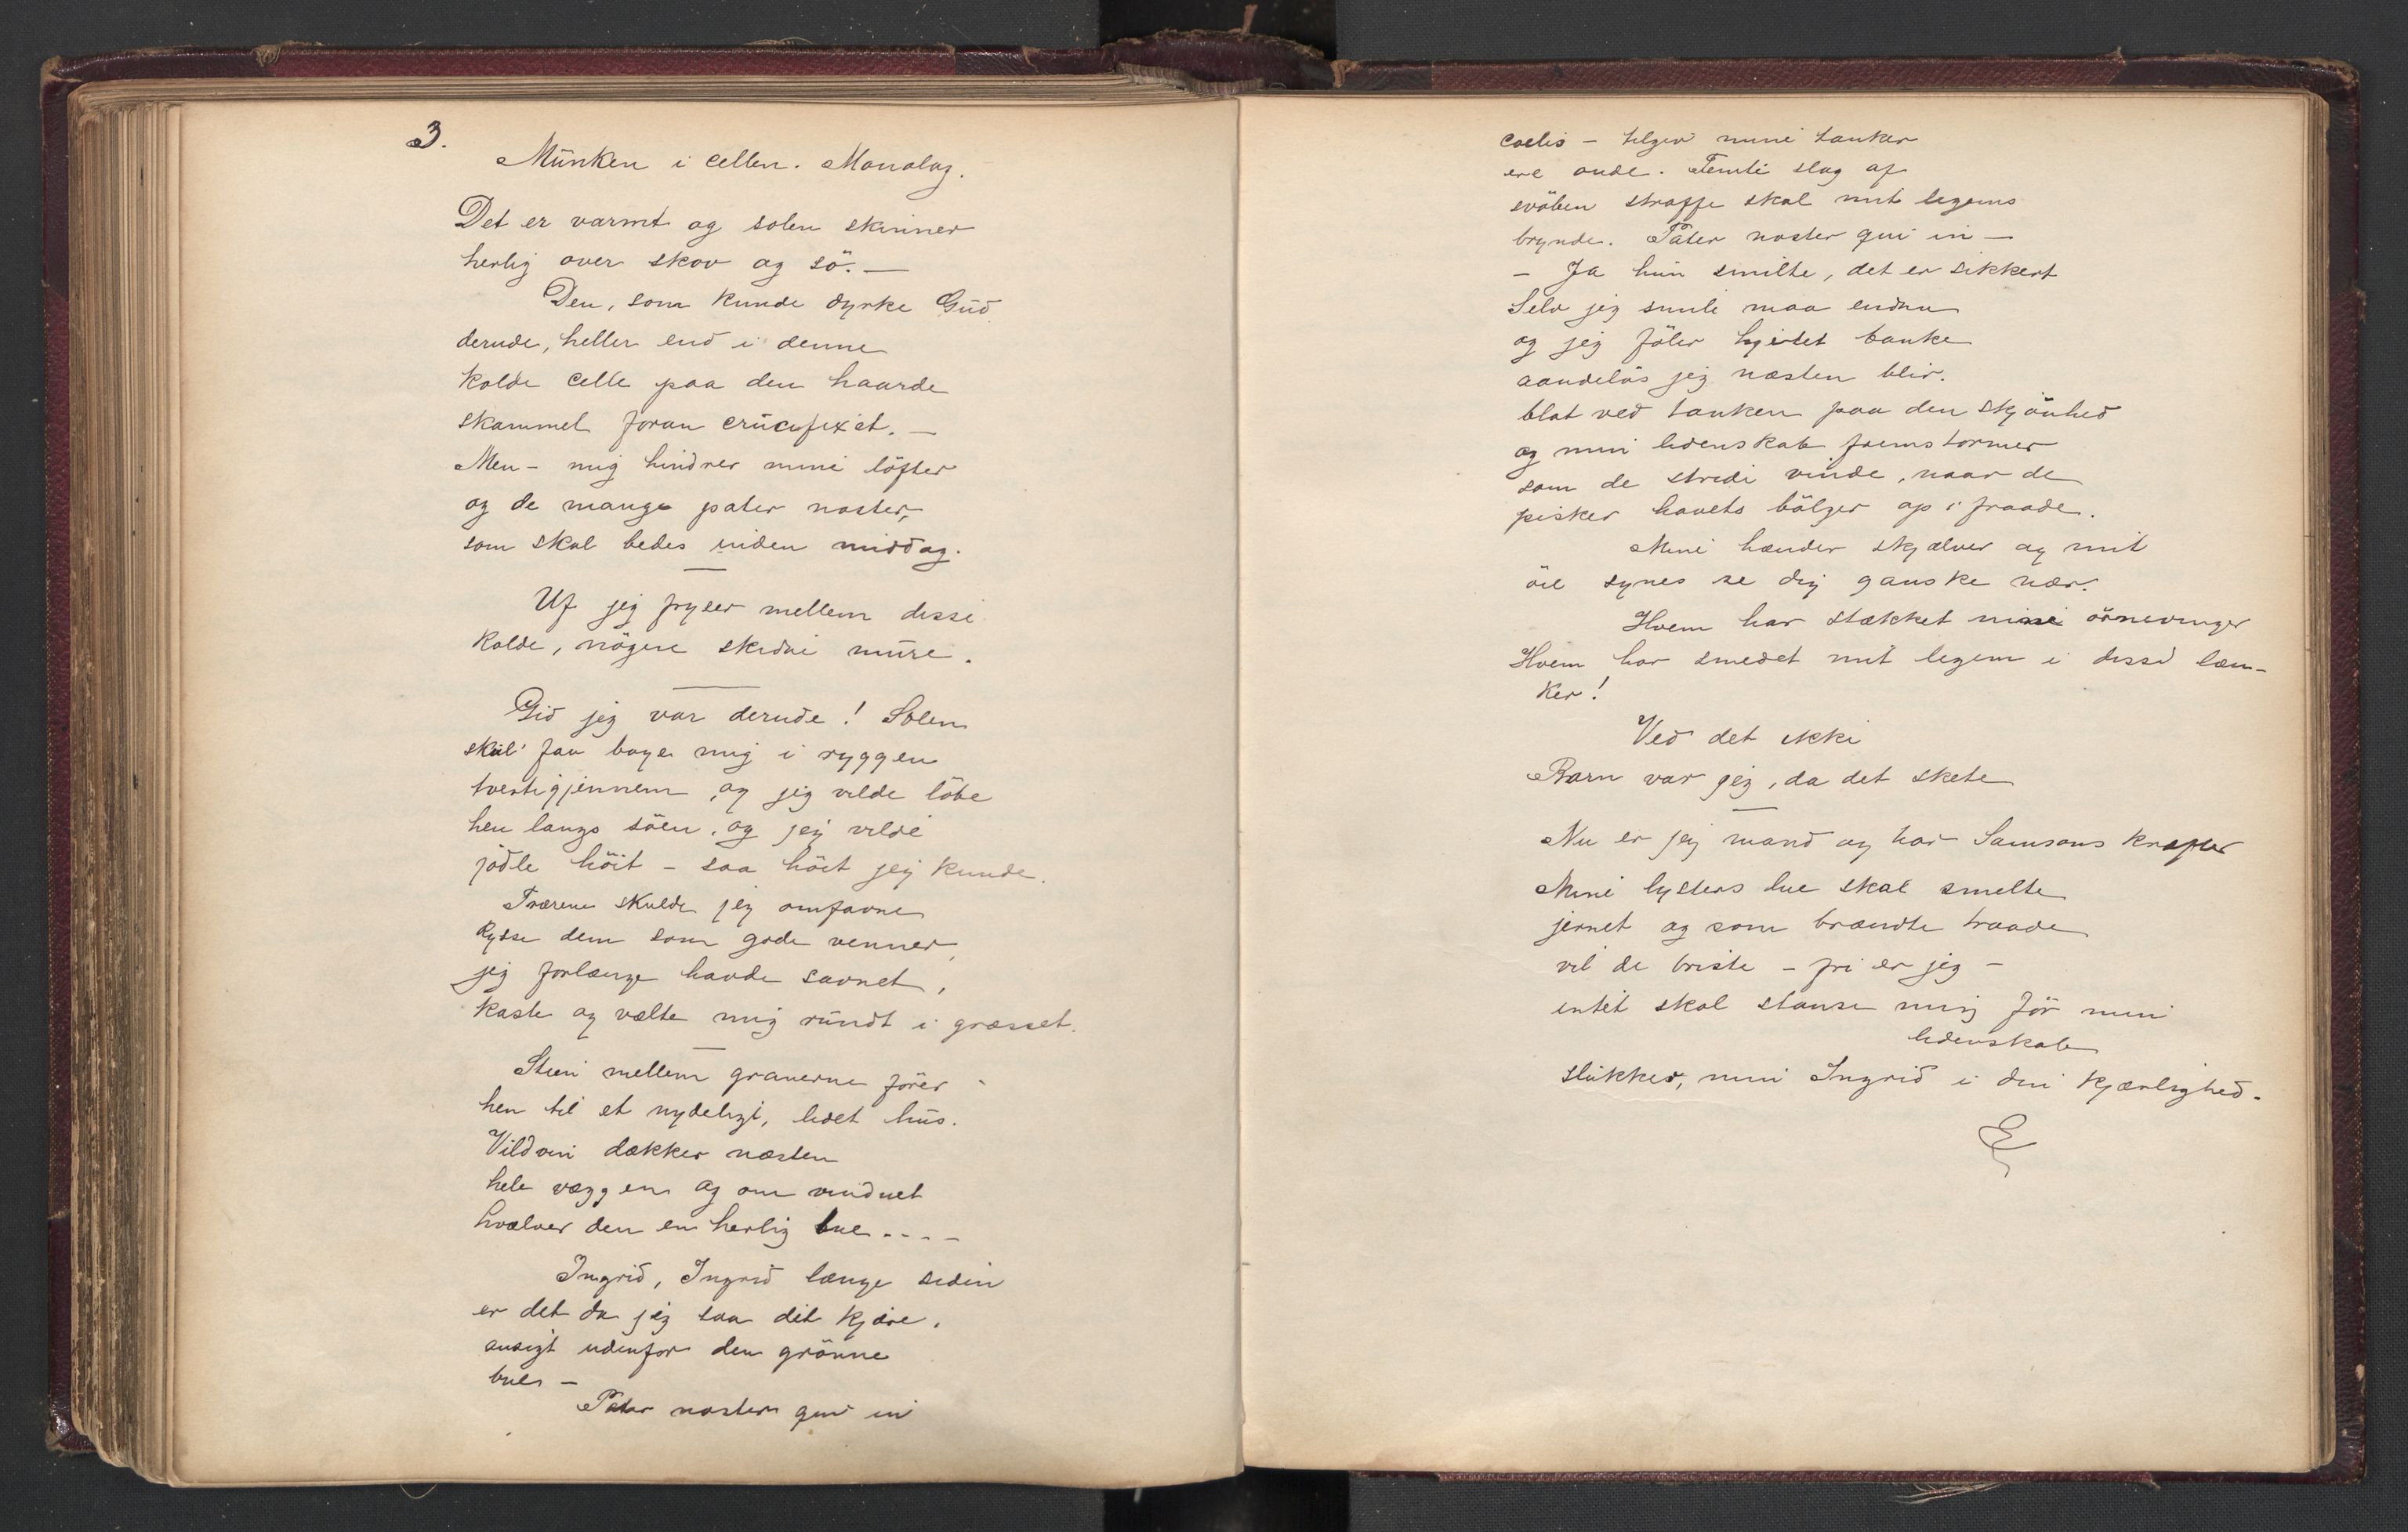 3.
Munken i cellen. Monolog.
Det er varmt og solen skinner
herlig over skov og sö. —
Den, som kunde dyrke Gud
derude, heller end i denne
kolde celle paa den haarde
skammel foran crucifixet. —
Men - mig hindrer mine löfter
og de mange pater noster,
som skal bedes inden middag.
Uf jeg fryser mellem disse
kolde, nögne skidne mure.
Gid jeg var derude! Solen
skul' faa bage mig i ryggen
tvertigjennem, og jeg vilde löbe
hen langs söen, og jeg vilde
jodle höit - saa höit jeg kunde.
Træerne skulde jeg omfavne
kysse dem som gode venner,
jeg forlænge havde savnet,
kaste og vælte mig rundt i græsset.
Stien mellem granerne förer
hen til et nydeligt, lidet hus.
Vildvin dækker næsten
hele væggen og om vinduet
hvælver den en herlig bue - - - -
Ingrid, Ingrid længe siden
er det da jeg saa dit kjære,
ansigt udenfor den grönne
bue -
Pater noster qui in
coelis - tilgiv mine tanker
ere onde. Femti slag af
svöben straffe skal mit legems
brynde. Pater noster qui in —
- Ja hun smilte, det er sikkert
Selv jeg smile maa endnu
og jeg föler hjertet banke
aandelös jeg næsten blir.
blot ved tanken paa den skjönhed
og min lidenskab fremstormer
som de stride vinde, naar de
pisker havets bölger op i fraade.
Mine hænder skjælver og mit
öie synes se dig ganske nær.
Hvem har stækket mine örnevinger
Hvem har smedet mit legem i disse læn-
ker!
Ved det ikke
Barn var jeg, da det skete
Nu er jeg mand og har Samsons kræfter
Mine lysters lue skal smelte
jernet og som brændte traade
vil de briste - fri er jeg -
intet skal stanse mig för min
lidenskab
slukkes, min Ingrid i din kjærlighed.
E